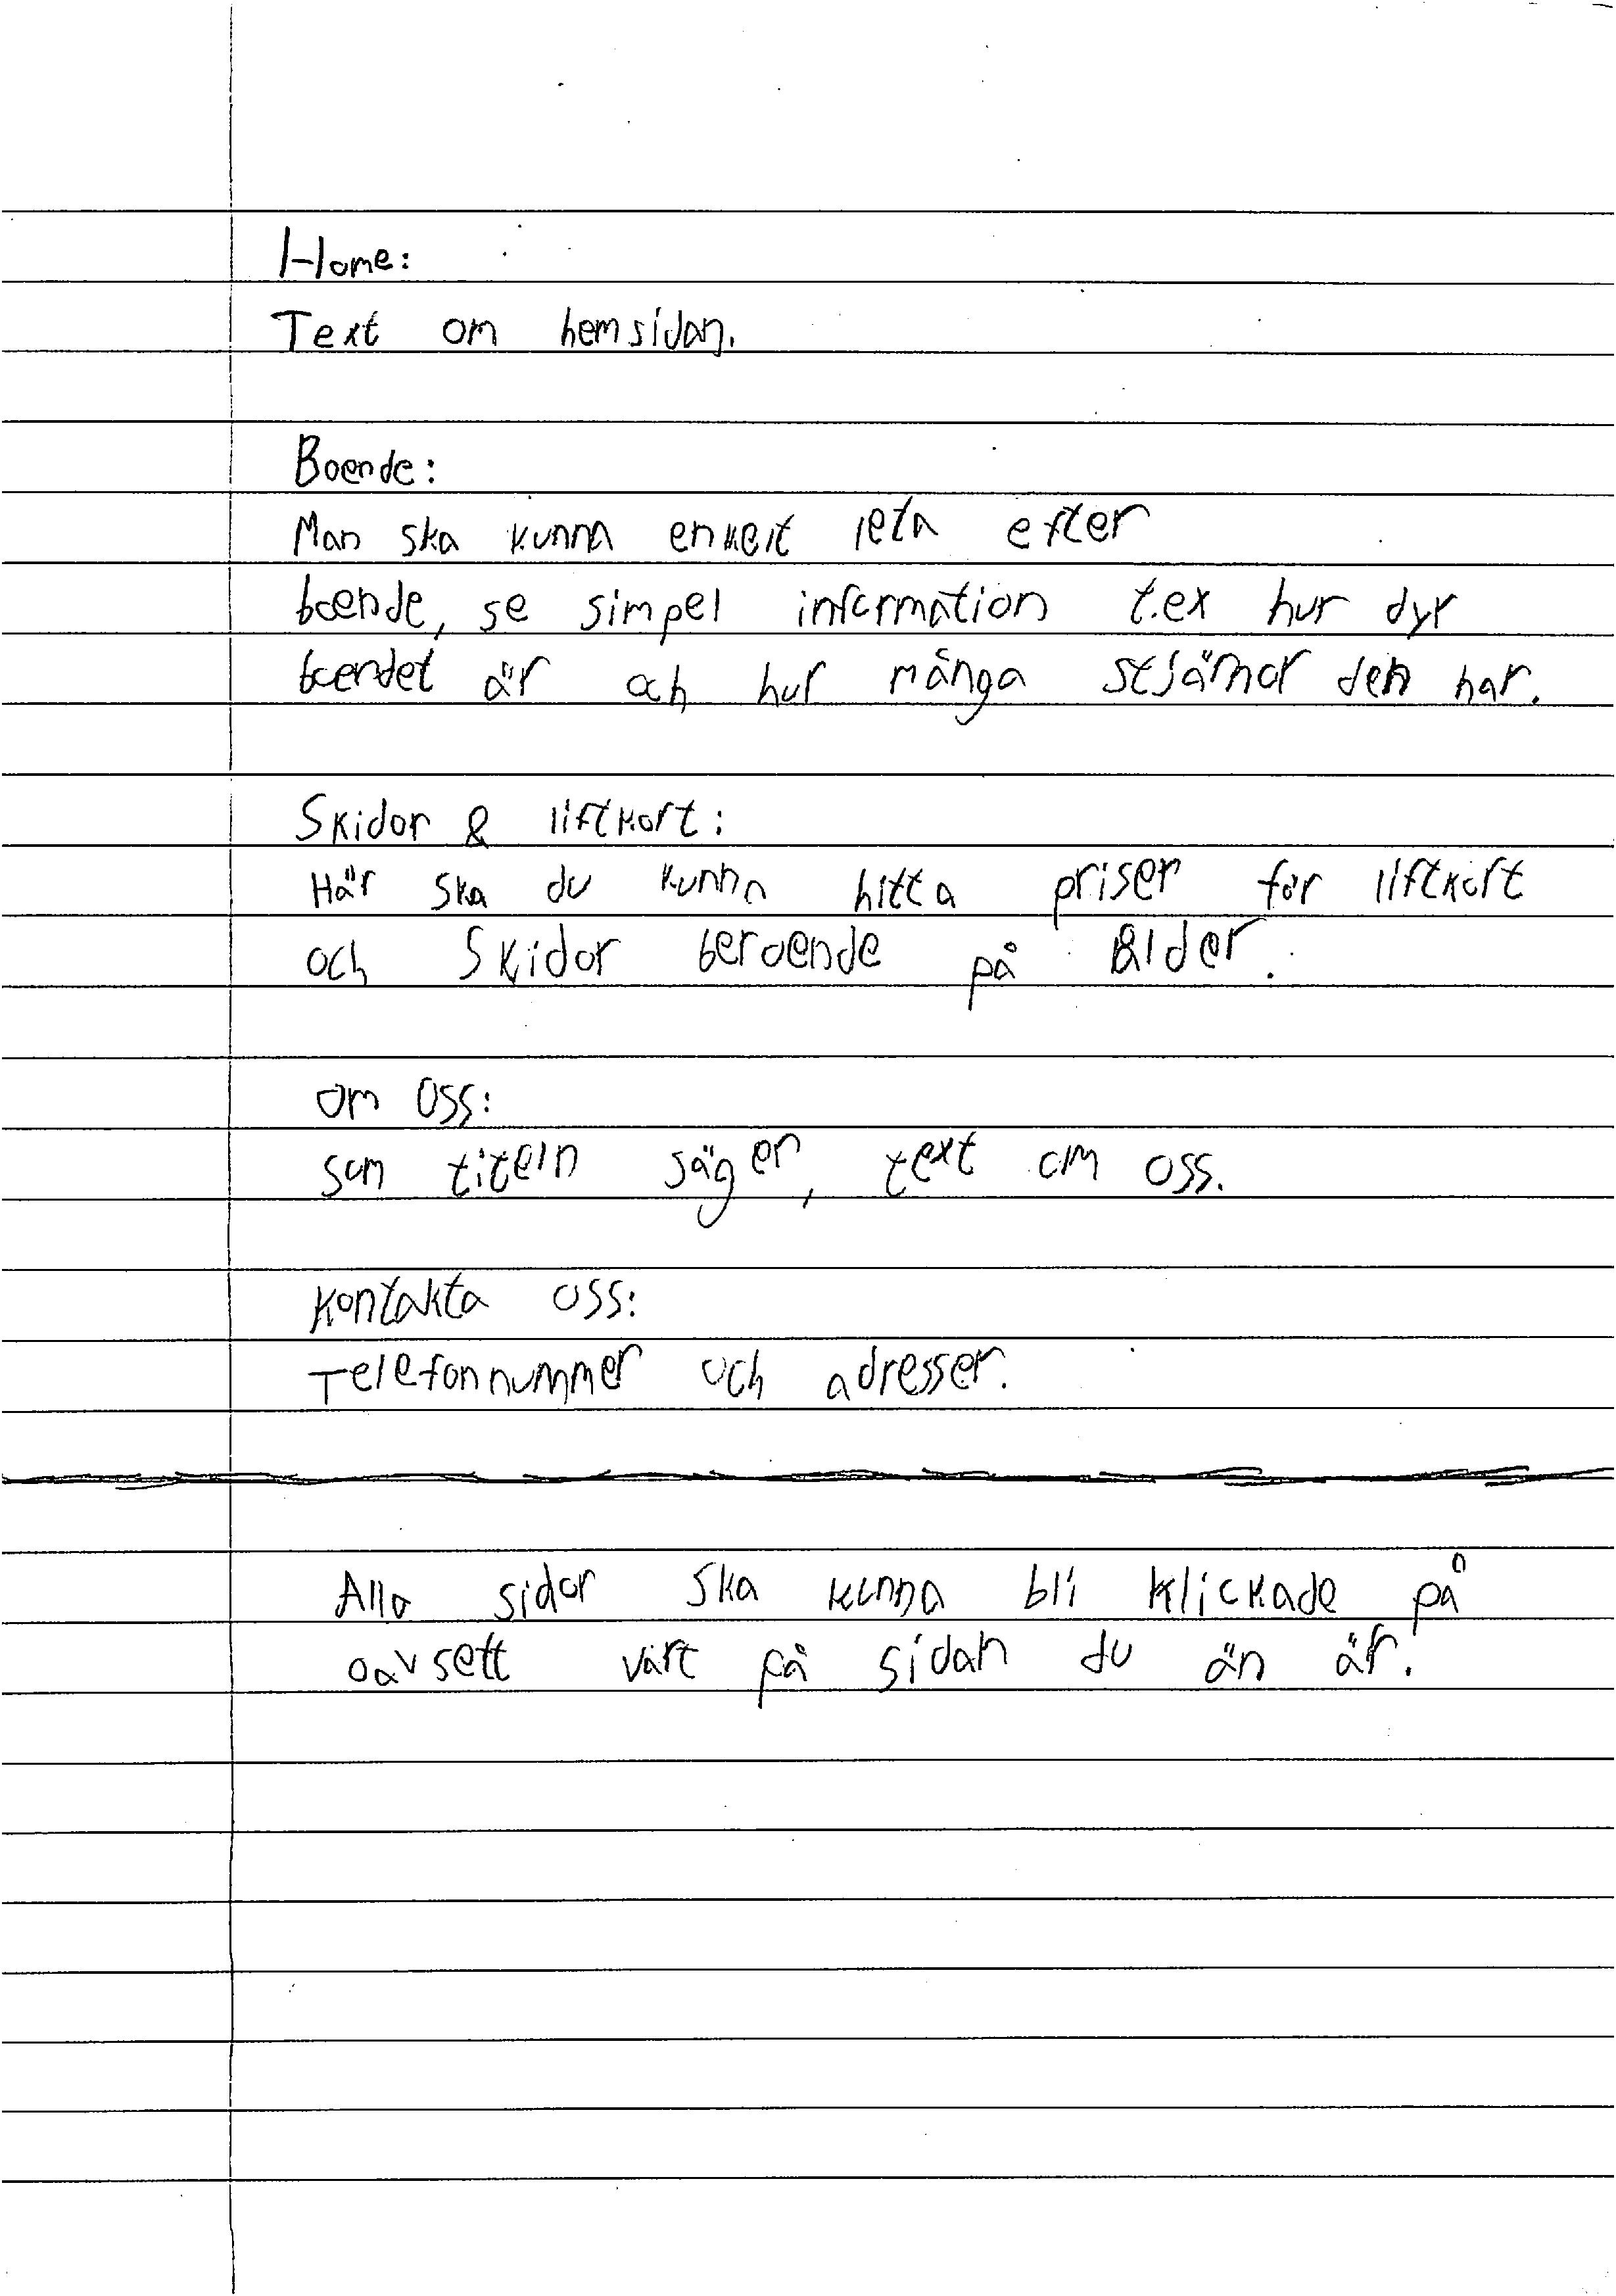 Home:
Text om hemsidan.
Boende:
Man ska kunna enkelt leta efter
boende, se simpel information t.ex hur dyr
boendet är och hur många stjärnor den har.
Skidor & liftkort:
Här ska du kunna hitta priser för liftkort
och Skidor beroende på ålder.
Om Oss:
som titeln säger, text om oss.
Kontakta oss:
Telefonnummer och adresser.
Alla sidor ska kunna bli klickade på
oavsett vart på sidan du än är.